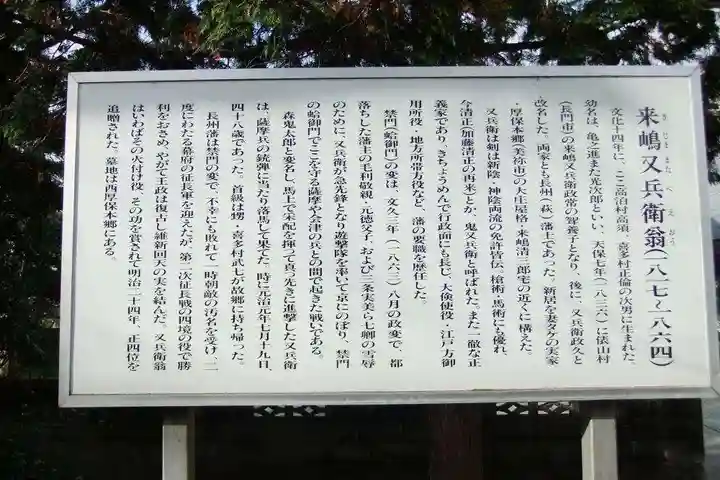 来嶋又兵衛翁(一八一七～一八六四)
きじままたべえおう
文化十四年に、ここ高泊村高須、喜多村正倫の次男に生まれた。
幼名は、亀之進また光次郎といい、天保七年(一八三六)に俵山村
(長門市)の来嶋又兵衛政常の聟養子となり、後に、又兵衛政久と
改名した。両家とも長州(萩)藩士であった。新居を妻タケの実家
・厚保本郷(美祢市)の大庄屋格・来嶋清三郎宅の近くに構えた。
又兵衛は剣は新陰・神陰両流の免許皆伝、槍術・馬術にも優れ、
今清正(加藤清正の再来)とか、鬼又兵衛と呼ばれた。また一徹な正
義家であり、きちょうめんで行政面にも長じ、大倹使役・江戸方御
用所役・地方所帯方役など、藩の要職を歴任した。
禁門(蛤御門)の変は、文久三年(一八六三)八月の政変で、都
落ちした藩主の毛利敬親・元徳父子、および三条実美ら七卿の雪辱
のために、又兵衛が急先鋒となり遊撃隊を率いて京にのぼり、禁門
の蛤御門でここを守る薩摩や会津の兵との間で起きた戦いである。
森鬼太郎と変名し、馬上で采配を揮って真っ先きに進撃した又兵衛
は、薩摩兵の銃弾に当たり落馬して果てた。時に元治元年七月十九日、
四十八歳であった。首級は甥・喜多村武七が故郷に持ち帰った。
長州藩は禁門の変で、不幸にも敗れて一時朝敵の汚名を受け、二
度にわたる幕府の征長軍を迎えたが、第二次征長戦の四境の役で勝
利をおさめ、やがて王政は復古し維新回天の実を結んだ。又兵衛翁
はいわばその火付け役、その功を賞されて明治二十四年、正四位を
追贈された。墓地は西厚保本郷にある。